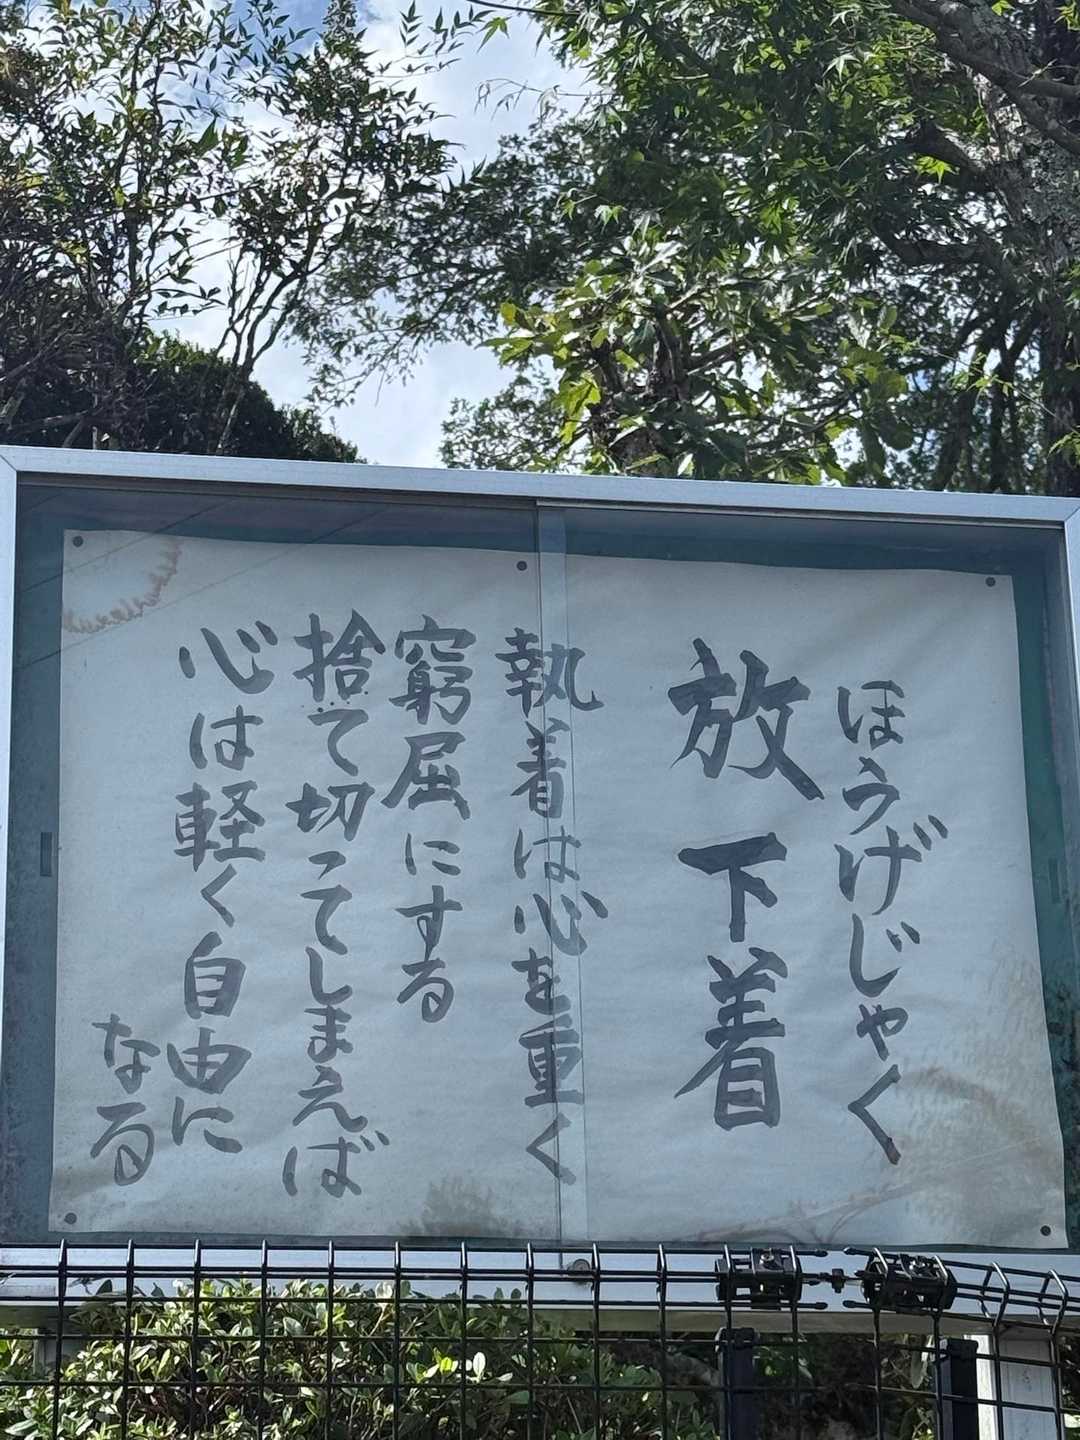 ほうげじゃく
放下着
執着は心を重く
窮屈にする
捨て切ってしまえば
心は軽く自由に
なる